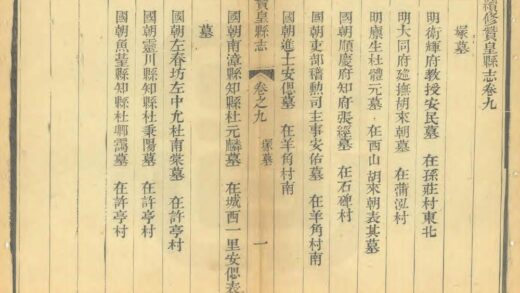 續修贊皇縣志卷九
塚墓
明衛輝府教授安民墓 在孫莊村東北
明大同府廵撫胡來朝墓 在蒲泓村
明廩生杜體元墓 在西山胡來朝表其墓
國朝順慶府知府張墓 在石碑村
國朝吏部稽勲司主事安佑墓 在羊角村南
國朝進士安偲墓 在羊角村南
皇縣志 卷之九 塚墓 一
國朝南漳縣知縣杜元麟墓 在城西一里安偲表
墓
國朝左春坊左中允杜南棠墓 在許亭村
國朝靈川縣知縣杜秉陽墓 在許亭村
國朝魚臺縣知縣杜靄墓 在許亭村